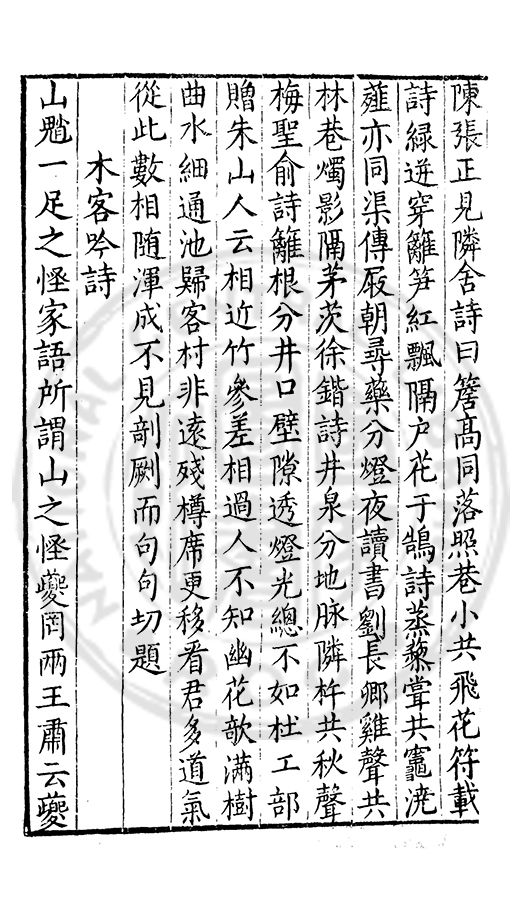 陳張正見隣舍詩曰簷高同落照巷小共飛花符載
詩緑迸穿籬笋紅飄隔户花于鵠詩蒸藜甞共竈澆
薤亦同渠傳屐朝尋藥分燈夜讀書劉長卿雞聲共
林巷燭影隔茅茨徐鍇詩井泉分地脉隣杵共秋聲
梅聖俞詩籬根分井口壁隙透燈光緫不如杜工部
贈朱山人云相近竹參差相過人不知幽花歌滿樹
曲水細通池歸客村非逺殘樽席更移看君多道氣
從此數相随渾成不見剞劂而句句切題
木客吟詩
山魈一足之怪家語所謂山之怪夔罔兩王肅云夔